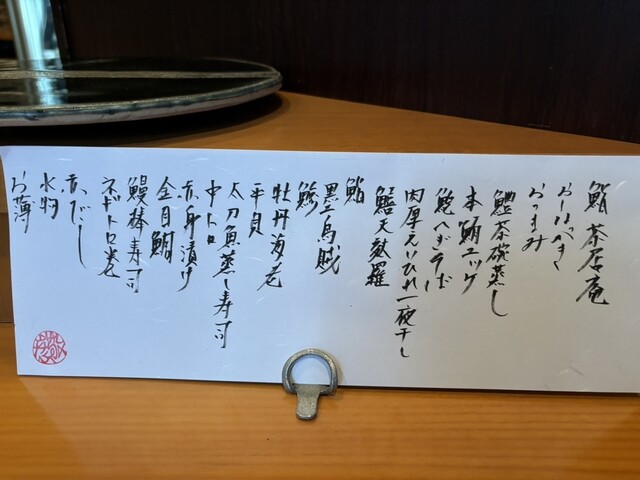 鮨 茶店庵
おしながき
おつまみ
鱧茶碗蒸し
本鮪ユッケ
肉厚えいひれ一夜干し
鱚天麩羅
鮨
墨烏賊
鯵
牡丹海老
平貝
太刀魚蒸し寿司
中トロ
赤身漬け
金目鯛
鰻棒寿司
ネギトロ巻
赤だし
水物
お薄